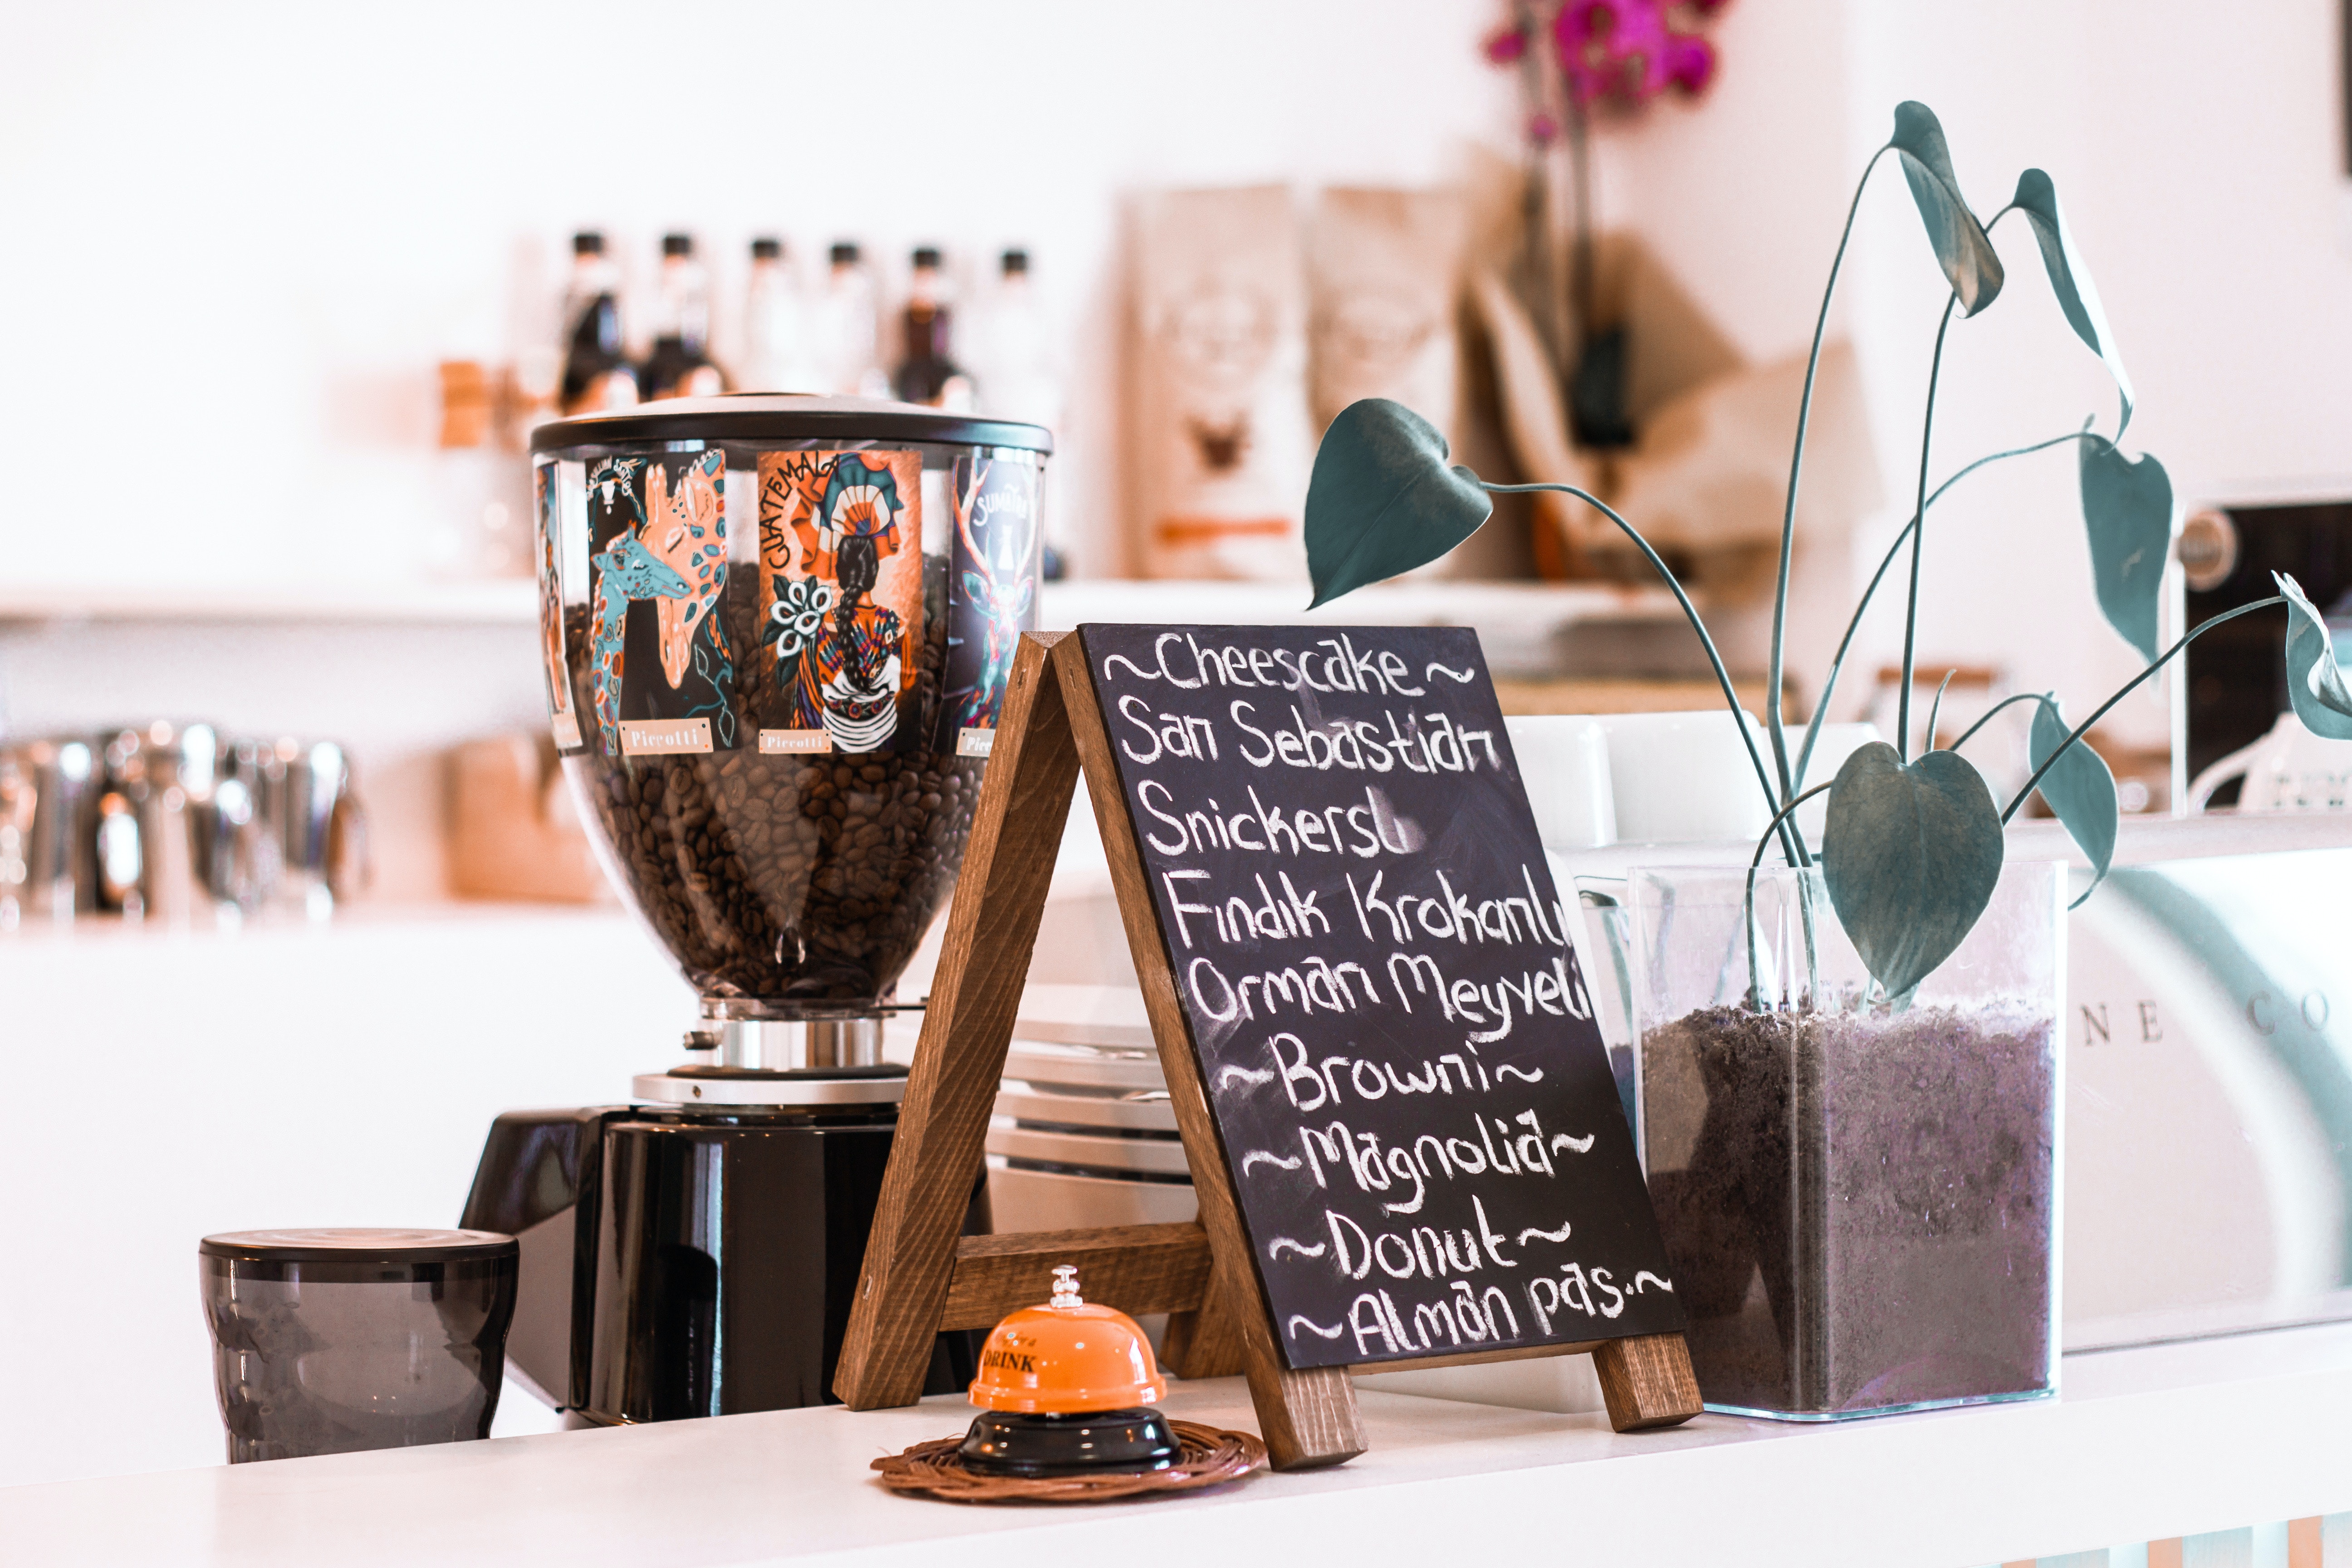 GUATEMALA
SUMATRA
Piccotti
Piccotti
~Cheesecake~
San Sebastian
Snickerslı
Fındık Krokanlı
Orman Meyveli
~Browni~
~Magnolia~
~Donut~
~Alman pas.~
DRINK
NE CO